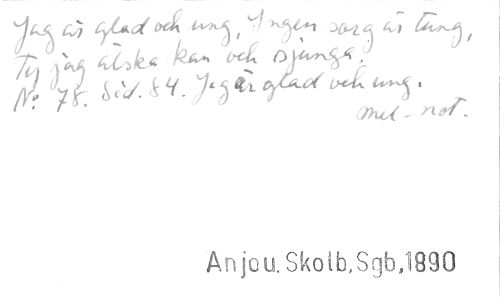 Jag är glad och ung, Ingen sorg är tung,
Ty jag älska kan och sjunga.
No 78. Sid. 84. Jag är glad och ung.
mel-not.
Anjou. Skolb, Sgb, 1890